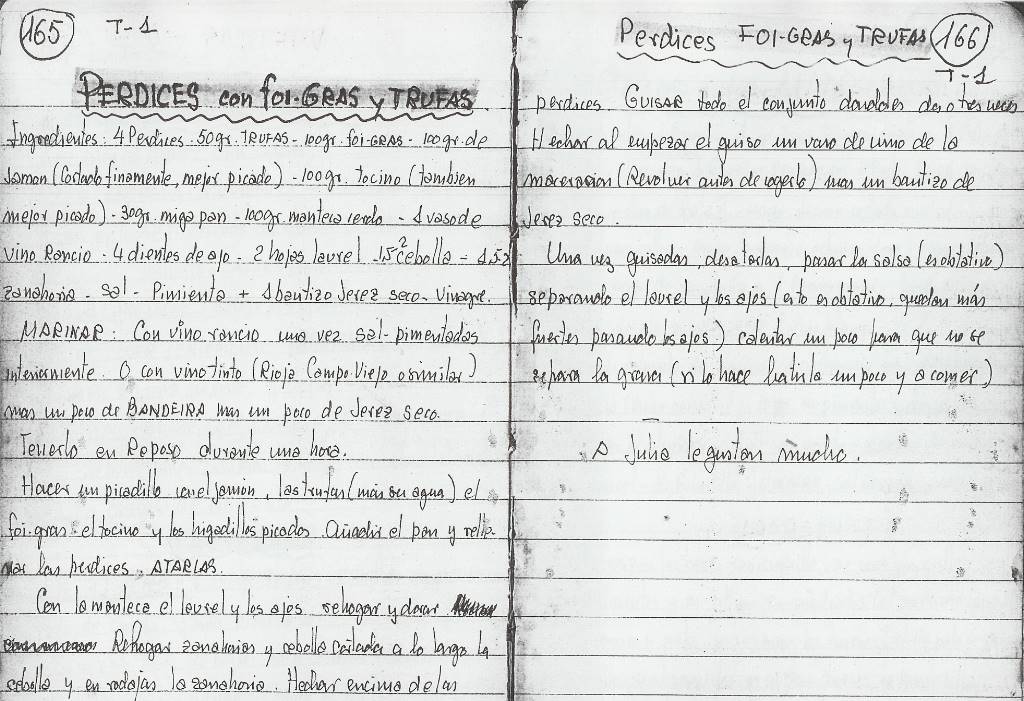 165 T-1
PERDICES con foi-GRAS y TRUFAS
Ingredientes: 4 Perdices - 50gr. TRUFAS - 100gr. foi-GRAS - 100gr. de
Jamon (Cortado finamente, mejor picado) - 100gr. tocino (tambien
mejor picado) - 30gr. miga pan - 100gr. manteca cerdo - 1 vaso de
vino Rancio - 4 dientes de ajo - 2 hojas laurel - 1,5 cebolla - 1,5
zanahoria - Sal - Pimienta + 1 bautizo Jerez seco - Vinagre.
MARINAR: Con vino rancio una vez sal-pimentadas
interiormente. O con vino tinto (Rioja Campo Viejo o similar)
mas un poco de BANDEIRA mas un poco de Jerez Seco.
Tenerlo en Reposo durante una hora.
Hacer un picadillo con el jamón, las trufas (más su agua) el
foi-gras el tocino y los higadillos picados. Añadir el pan y relle-
nar las perdices. ATARLAS.
Con la manteca el laurel y los ajos rehogar y dorar
Rehogar zanahorias y cebolla cortada a lo largo la
cebolla y en rodajas la zanahoria. Hechar encima de las
Perdices FOI-GRAS y TRUFAS 166
T-1
perdices. GUISAR todo el conjunto dandoles dos o tres veces
Hechar al empezar el guiso un vaso de vino de la
maceracion (Revolver antes de cogerlo) mas un bautizo de
Jerez seco.
Una vez guisadas, desatarlas, pasar la salsa (es obtativo)
separando el laurel y los ajos (esto es obtativo, quedan más
fuertes pasando los ajos) calentar un poco para que no se
separa la grasa (si lo hace batirla un poco y a comer)
A Julia le gustan mucho.